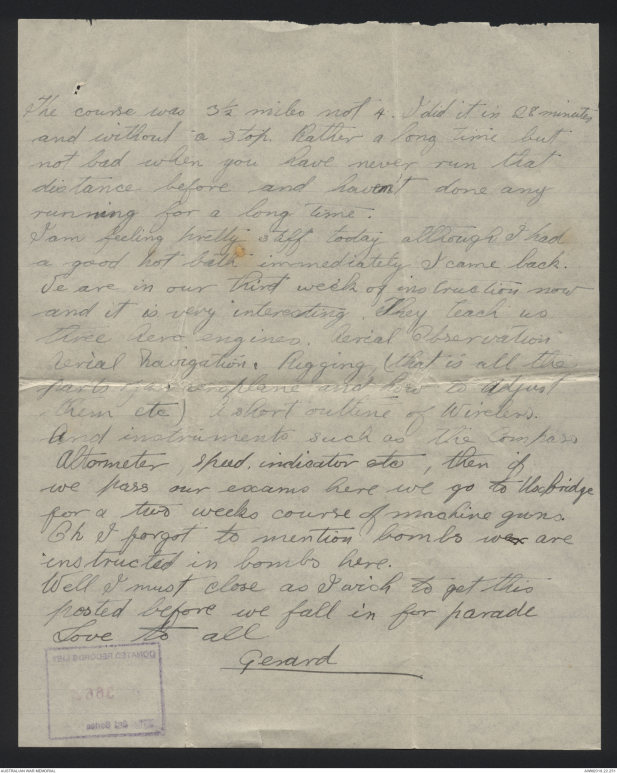 The course was 3½ miles not 4. I did it in 28 minutes
and without a stop. Rather a long time but
not bad when you have never run that
distance before and haven't done any
running for a long time.
I am feeling pretty stiff today although I had
a good hot bath immediately I came back.
We are in our third week of instruction now
and it is very interesting. They teach us
three Aero engines. Aerial Observation
Aerial Navigation. Rigging (that is all the
parts of an aeroplane and how to adjust
them etc) A short outline of Wireless.
And instruments such as the Compass
Altometer, speed indicator etc, then if
we pass our exams here we go to Uxbridge
for a two weeks course of machine guns.
Oh I forgot to mention bombs we are
instructed in bombs here.
Well I must close as I wish to get this
posted before we fall in for parade
Love to all
Gerard
DONATED RECORDS LIST
3rd Series
AUSTRALIAN WAR MEMORIAL